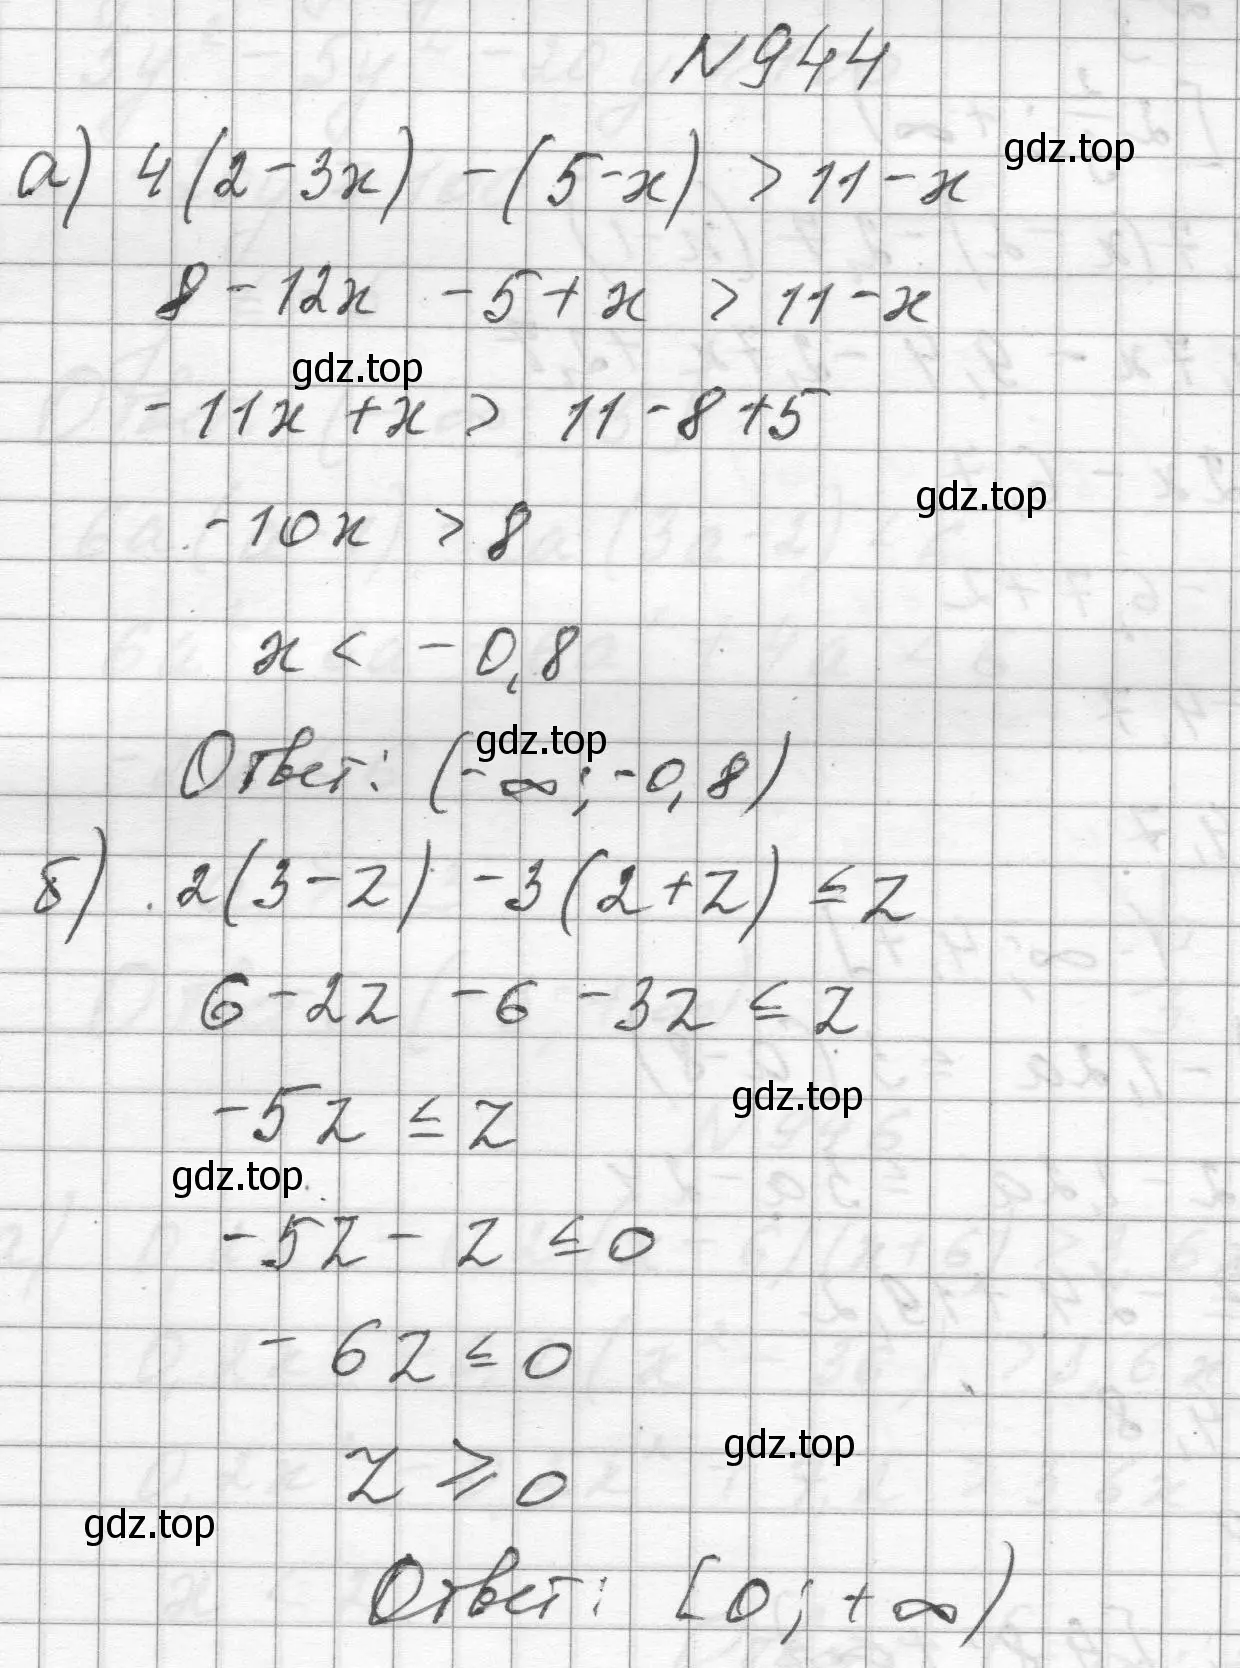 N 944
а) 4(2-3x) -(5-x) > 11-x
gdz.top
8-12x -5+x > 11-x
gdz.top
-11x +x > 11-8+5
gdz.top
-10x > 8
x < -0,8
gdz.top
Ответ: (-∞; -0,8)
б) 2(3-z) -3(2+z) ≤ z
6-2z -6 -3z ≤ z
gdz.top
-5z ≤ z
gdz.top
-5z - z ≤ 0
-6z ≤ 0
gdz.top
z ⩾ 0
gdz.top
Ответ: [0; +∞)